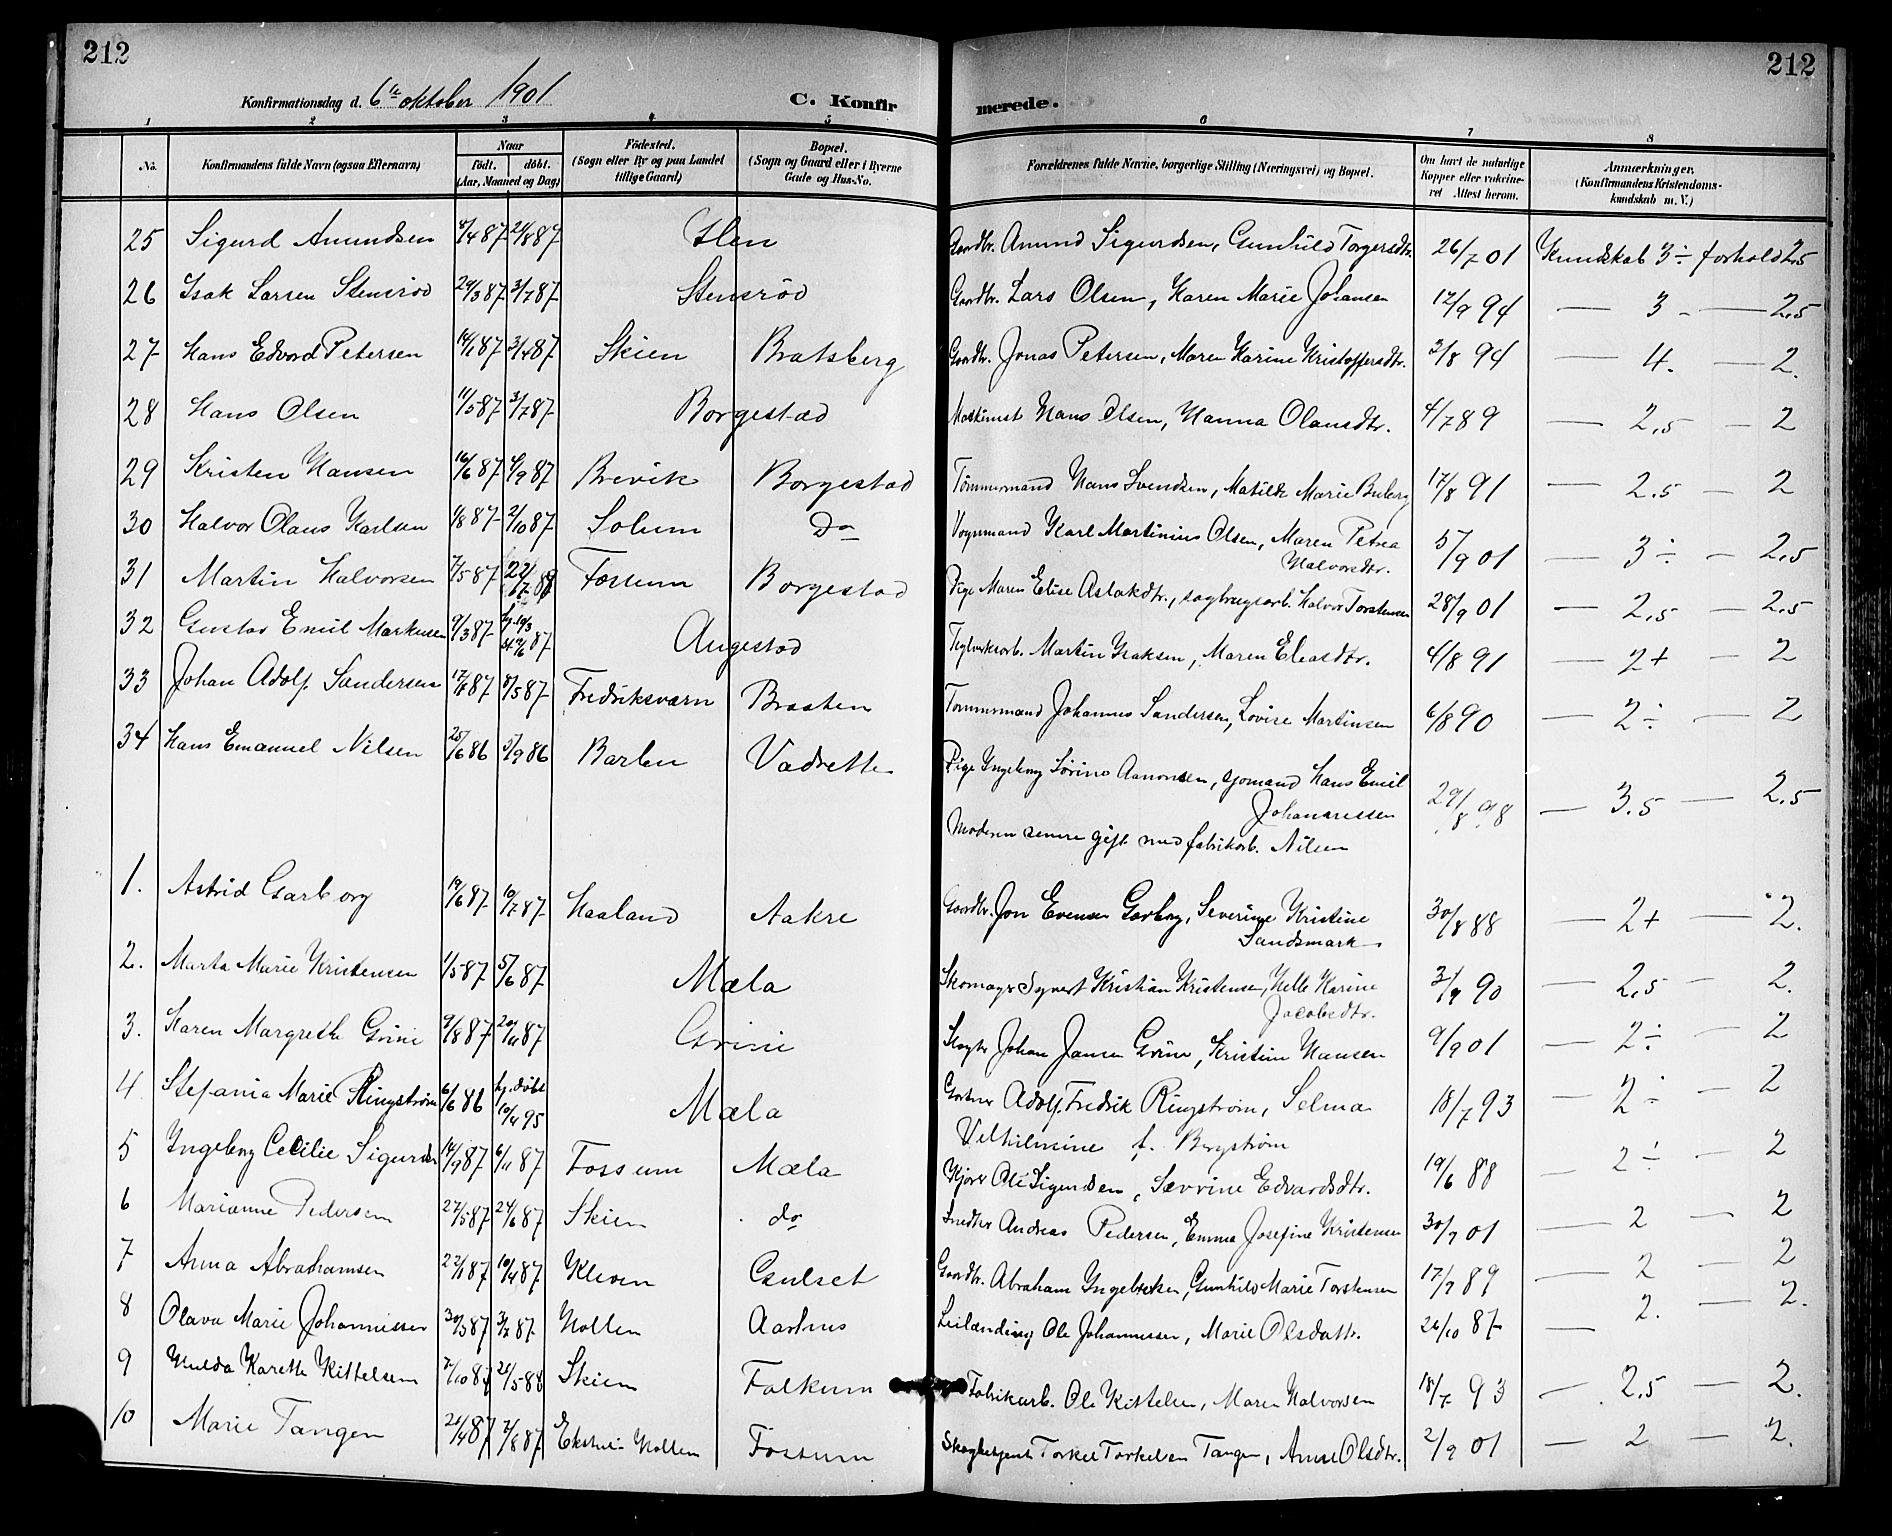 212
212
Konfirmationsdag d. 6te oktober 1901
C. Konfir
merede.
1 2 3 4 5 6 7 8
No. Konfirmandens fulde Navn (ogsaa Efternavn) Naar födt. döbt. (Aar, Maaned og Dag) Födested. (Sogn eller By og paa Landet tillige Gaard) Bopæl. (Sogn og Gaard eller i Byerne Gade og Hus-No. Forældrenes fulde Navne, borgerlige Stilling (Næringsvei) og Bopæl. Om havt de naturlige Kopper eller vakcineret Attest herom. Anmærkninger. (Konfirmandens Kristendomskundskab m. V.)
25 Sigurd Amundsen 87 21/8 87 Gaardbr. Amund Sigurdsen, Gunhild Torgersdtr. 26/7 01 Kundskab 3÷ forhold 2,5
26 Isak Larsen Stensrød 29/3 87 3/7 87 Stensrød Gaardbr. Lars Olsen, Karen Marie Johansen 12/9 94 — 3 — 2,5
27 Hans Edvard Petersen 14/1 87 3/4 87 Skien Bratsberg Gaardbr. Jonas Petersen, Maren Karine Kristoffersdtr. 3/8 94 — 4. — 2.
28 Hans Olsen 11/5 87 3/7 87 Borgestad Maskinist Hans Olsen, Hanna Olausdtr. 4/7 89 — 2,5 — 2
29 Kristen Hansen 16/6 87 4/9 87 Brevik Borgestad Tømmermand Hans Svendsen, Matilde Marie 17/8 91 — 2,5 — 2
30 Halvor Olaus Karlsen 1/8 87 2/10 87 Solum Do Vognmand Karl Martinius Olsen, Maren Petrea Halvorsdtr. 5/9 01 — 3÷ — 2,5
31 Martin Halvorsen 7/5 87 Fossum Borgestad Pige Maren Elise Aslakdtr., sagbrugsarb. Halvor Torstensen 28/9 01 — 2,5 — 2,5
32 Gustav Emil Markusen 9/3 87 Augestad Teglverksarb. Martin Isaksen, Maren Eliasdtr. 4/8 91 — 2+ — 2
33 Johan Adolf Sandersen 87 8/5 87 Fredriksværn Braaten Tømmermand Johannes Sandersen, Lovise Martinsen 6/8 90 — 2÷ — 2
34 Hans Emanuel Nilsen 25/6 86 5/9 86 Barlen Vadrette Pige Ingeborg Sørine Aanonsen, sjømand Hans Emil Johannessen 29/8 98 — 3.5 — 2,5
Moderen senere gift med fabrikarb. Nilsen
1. Astrid Garborg 19/6 87 10/7 87 Haaland Aakre Gaardbr. Jon Evensen Garborg, Severine Kristine Sandsmark 30/8 88 — 2+ — 2.
2. Marta Marie Kristensen 1/5 87 5/6 87 Mæla Skomager Syvert Kristian Kristensen, Helle Karine Jacobsdtr. 90 — 2,5 — 2.
3. Karen Margrethe Grini 9/8 87 20/11 87 Grini Johan Jansen Grini, Kristine Hansen 9/9 01 — 2÷ — 2
4 Stefania Marie Ringstrøm 6/6 86 hj. døbt 10/4 95 Mæla Gartner Adolf Fredrik Ringstrøm, Selma Vilhelmine f. Bergstrøm 18/7 93 — 2÷ — 2
5 Ingeborg Cecilie Sigurdsen 14/9 87 6/11 87 Fossum Mæla Kjører Ole Sigurdsen, Sævrine Edvardsdtr. 19/6 88 — 2÷ — 2
6 Marianne Pedersen 27/5 87 24/6 87 Skien do Andreas Pedersen, Emma Josefine Kristensen 30/9 01 — 2 — 2
7 Anna Abrahamsen 22/1 87 10/4 87 Kleven Gulset Gaardbr. Abraham Ingebretsen, Gunhild Marie Torstensen 17/7 89 — 2 — 2
8 Olava Marie Johannessen 30/3 87 87 Holten Aarhus Leilænding Ole Johannessen, Marie Olsdattr. 26/10 87 — 2. — 2.
9 Hulda Karette Kittelsen 7/10 87 21/5 88 Skien Falkum Fabrikarb. Ole Kittelsen, Maren Halvorsen 18/7 93 — 2,5 — 2.
10 Marie Tangen 21/4 87 7/8 87 Holten Fossum Skogbetjent Torkel Torkelsen Tangen, Anne Olsdtr. 2/9 01 — 2 — 2.